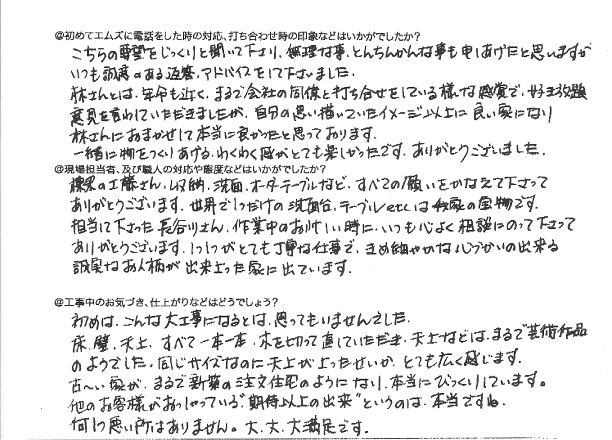 @初めてエムズに電話をした時の対応、打ち合わせ時の印象などはいかがでしたか?
こちらの要望をじっくりと聞いて下さり、無理な事、とんちんかんな事も申しあげたと思いますが
いつも誠意のある返答、アドバイスをして下さいました。
林さんとは、年令も近く、まるで会社の同僚と打ち合せをしている様な感覚で、好き放題
意見を言わせていただきましたが、自分の思い描いていたイメージ以上に良い家になり
林さんにおまかせして本当に良かったと思っております。
一緒に物をつくりあげる、わくわく感がとても楽しかったです。ありがとうございました。
@現場担当者、及び職人の対応や態度などはいかがでしたか?
工藤さん、収納、洗面、オーダーテーブルなど、すべての願いをかなえて下さって
ありがとうございます。世界で1つだけの洗面台、テーブルetc.は我家の宝物です。
担当して下さった長谷川さん、作業中のお忙しい時に、いつも心よく相談にのって下さって
ありがとうございます。1つ1つがとても丁寧な仕事で、きめ細やかな心づかいの出来る
誠実なお人柄が出来上った家に出ています。
@工事中のお気づき、仕上がりなどはどうでしょう?
初めは、こんな大工事になるとは、思ってもいませんでした。
床、壁、天上、すべて一本一本、木を切って直していただき、天上などは、まるで芸術作品
のようでした。同じサイズなのに天上が上ったせいか、とても広く感じます。
古〜い家が、まるで新築の注文住宅のようになり、本当にびっくりしています。
他のお客様がおっしゃっている"期待以上の出来"というのは、本当ですね。
何1つ悪い所はありません。大、大、大満足です。